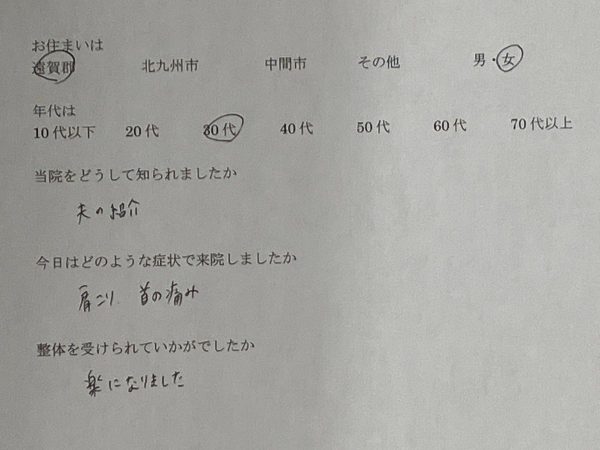 お住まいは
遠賀郡 北九州市 中間市 その他 男・女
年代は
10代以下 20代 30代 40代 50代 60代 70代以上
当院をどうして知られましたか
夫の紹介
今日はどのような症状で来院しましたか
肩こり 首の痛み
整体を受けられていかがでしたか
楽になりました